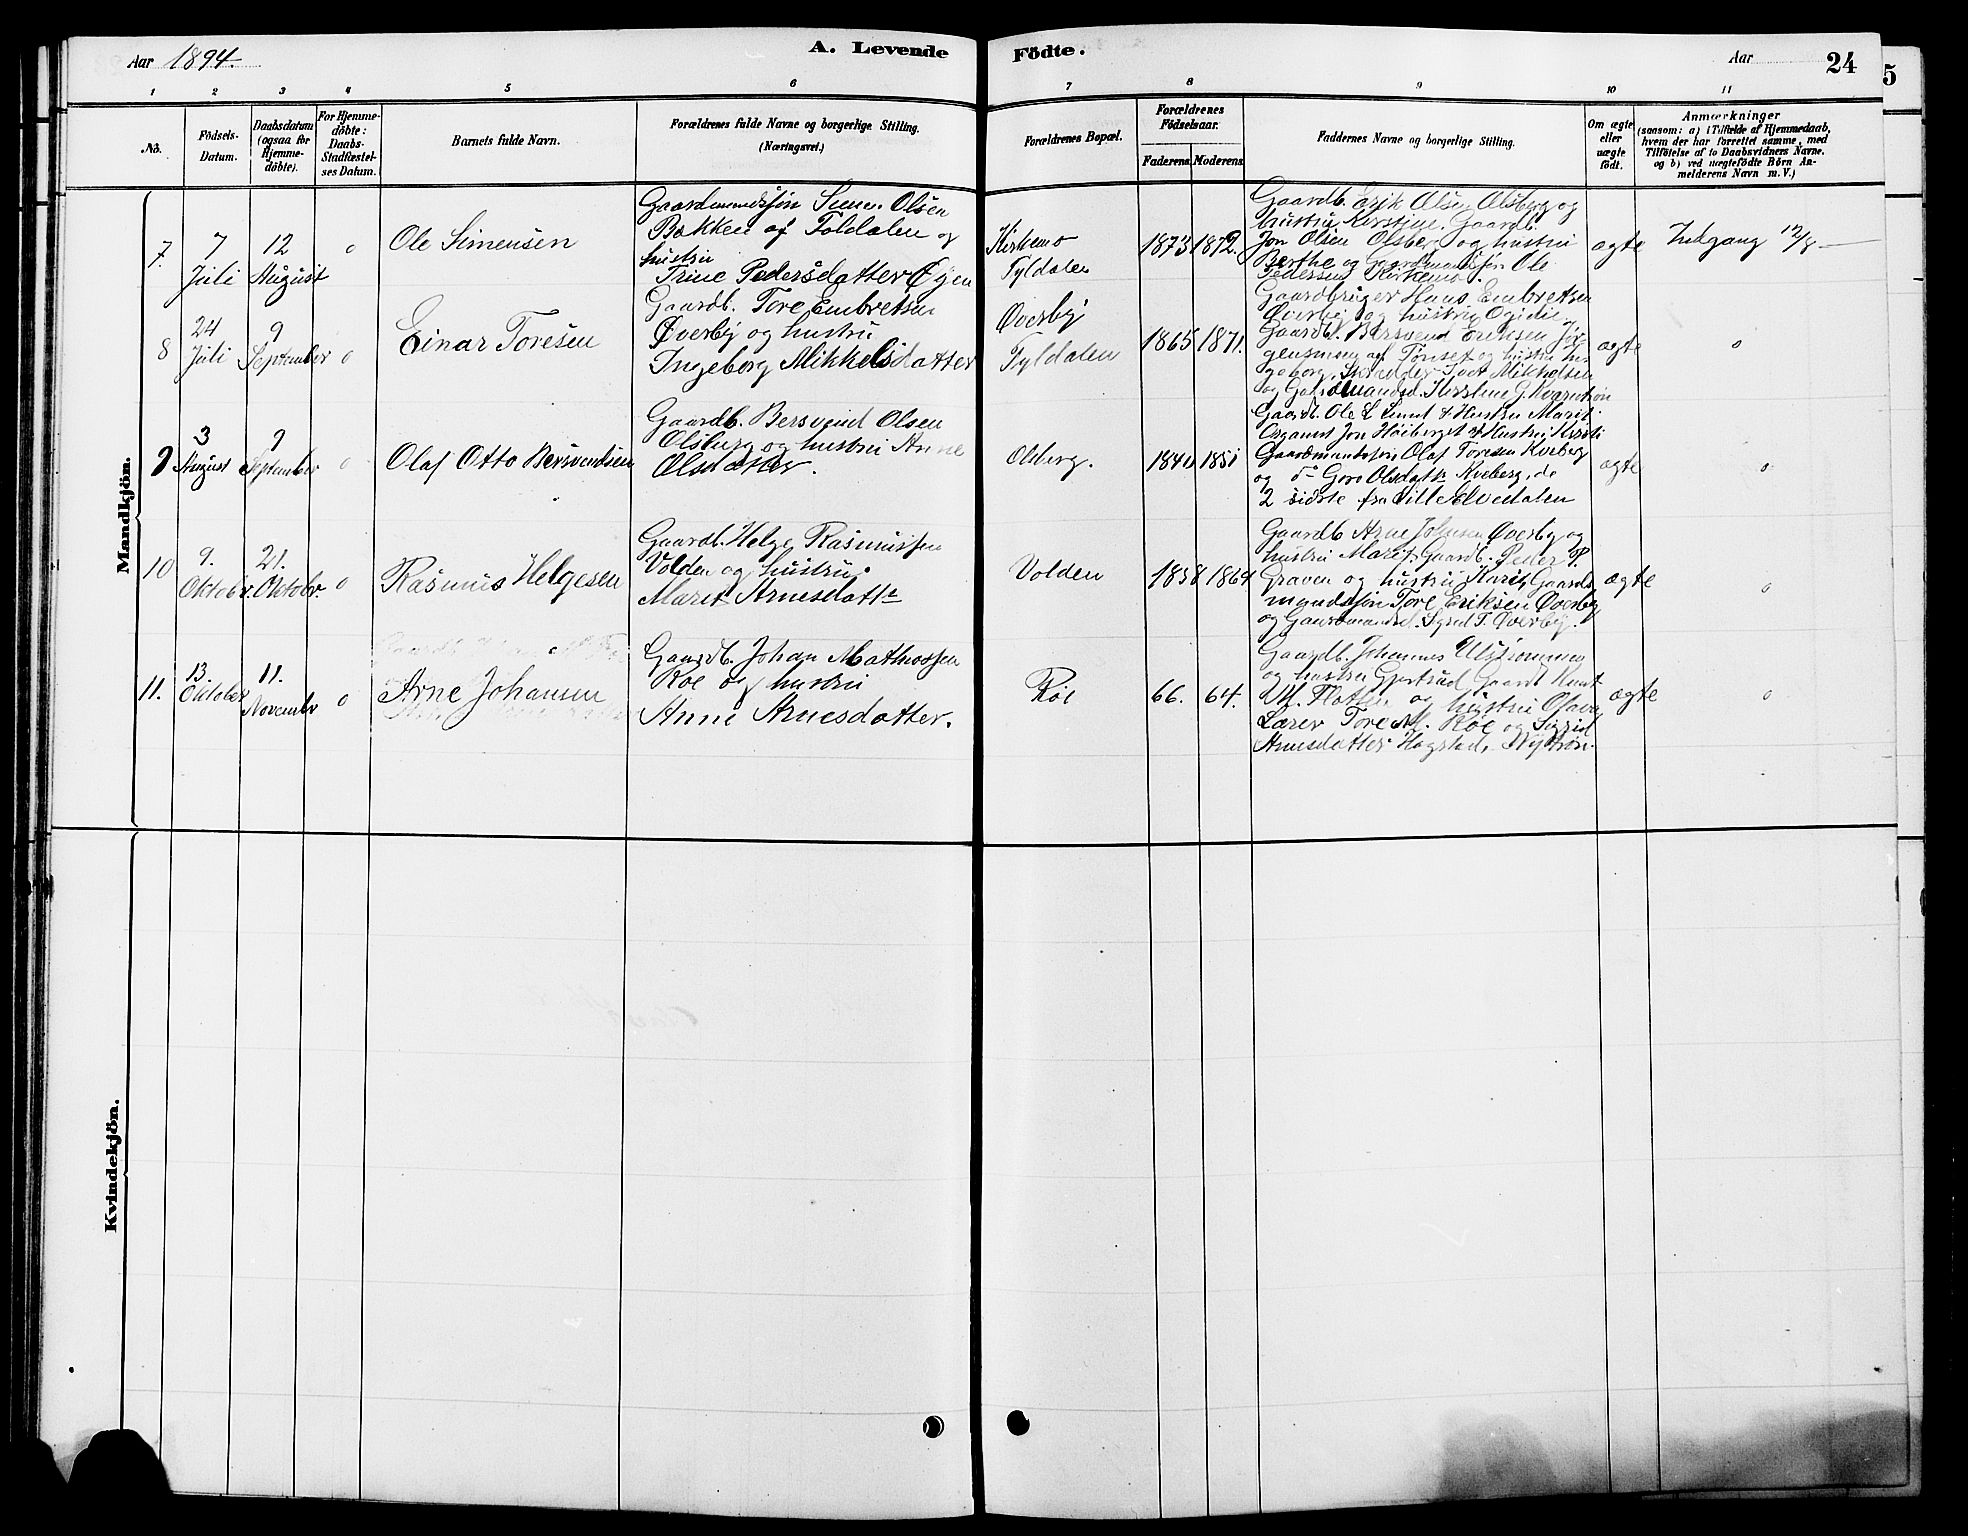 Aar 1894.
A. Levende
Födte.
Aar
24
5
1 2 3 4 5 6 7 8 9 10 11
No.
Födsels-
Datum.
Daabsdatum
(ogsaa for
Hjemme-
døbte).
For Hjemme-
döbte:
Daabs-
Stadfæstel-
ses Datum.
Barnets fulde Navn.
Forældrenes fulde Navne og borgerlige Stilling.
(Næringsvei.)
Forældrenes Bopæl.
Forældrenes
Födselsaar.
Faderens. Moderens.
Faddernes Navne og borgerlige Stilling.
Om ægte
eller
uægte
født.
Anmærkninger
(saasom: a) i Tilfælde af Hjemmedaab,
hvem der har forrettet samme, med
Tilföielse af to Daabsvidners Navne.
og b) ved uægtefödte Börn An-
melderens Navn m. V.)
Mandkjön.
7.
7
Juli
12
August
0
Ole Simensen
Gaardmandssøn Simen Olsen
Bækken af Foldalen og
hustru
Trine Pedersdatter Øyen
Kirkemo
Tyldalen
1873 1872.
Gaardb. Erik Olsen Olsberg og
hustru Kirstine. Gaardb.
Jon Olsen Olsberg og hustru
Berthe og Gaardmandssøn Ole
Pedersen Kirkemo.
ægte
Indgang 12/8
8
24
Juli
9
September
0
Einar Toresen
Gaardb. Tore Embretsen
Øverby og hustru
Ingeborg Mikkelsdatter
Øverby
Tyldalen
1865 1871.
Gaardbruger Hans Embretsen
Øverby og hustru
Gaardb. Bersvend Eriksen Jør
gensmoen af Tønset og hustru In-
geborg, Skrædder Mikkelsen
og Gaardmandsd. Kirstine J.
ægte
0
9
3
August
9
September
0
Olaf Otto Bersvendsen
Gaardb. Bersvend Olsen
Olsberg og hustru Anne
Olsdatter.
Olsberg.
1840 1851
Gaardb. Ole L. og Hustru Marit.
Organist Jon Høiberget og Hustru Kirsti
Gaardmandssøn Olaf Toresen Kveberg
og do Goro Olsdatter Kveberg, de
2 sidste fra Lille Elvedalen
ægte
0
10
9.
Oktobr.
21.
Oktobr.
0
Rasmus Helgesen
Gaardb. Helge Rasmussen
Volden og hustru
Marit Arnesdatt.
Volden
1858 1864
Gaardb Arne Johnsen Øverby og
hustru Marit. Gaardb. Peder P.
Graven og hustru Karit, Gaard-
mandssøn Tore Eriksen Øverby
og Gaardmandsd. Sigrid T. Øverby.
ægte
0
11.
13.
Oktober
11.
November
0
Arne Johansen
Gaardb. Johan Mathiassen
Røe og hustru
Anne Arnesdatter.
Røe
66. 64.
Gaardb. Johannes
og hustru Gjertrud, Gaardb. Knut
M. Flotten og hustru Olava
Lærer Tore M. Røe og Sigrid
Arnesdatter Hagstad,
ægte
0
Kvindekjön.